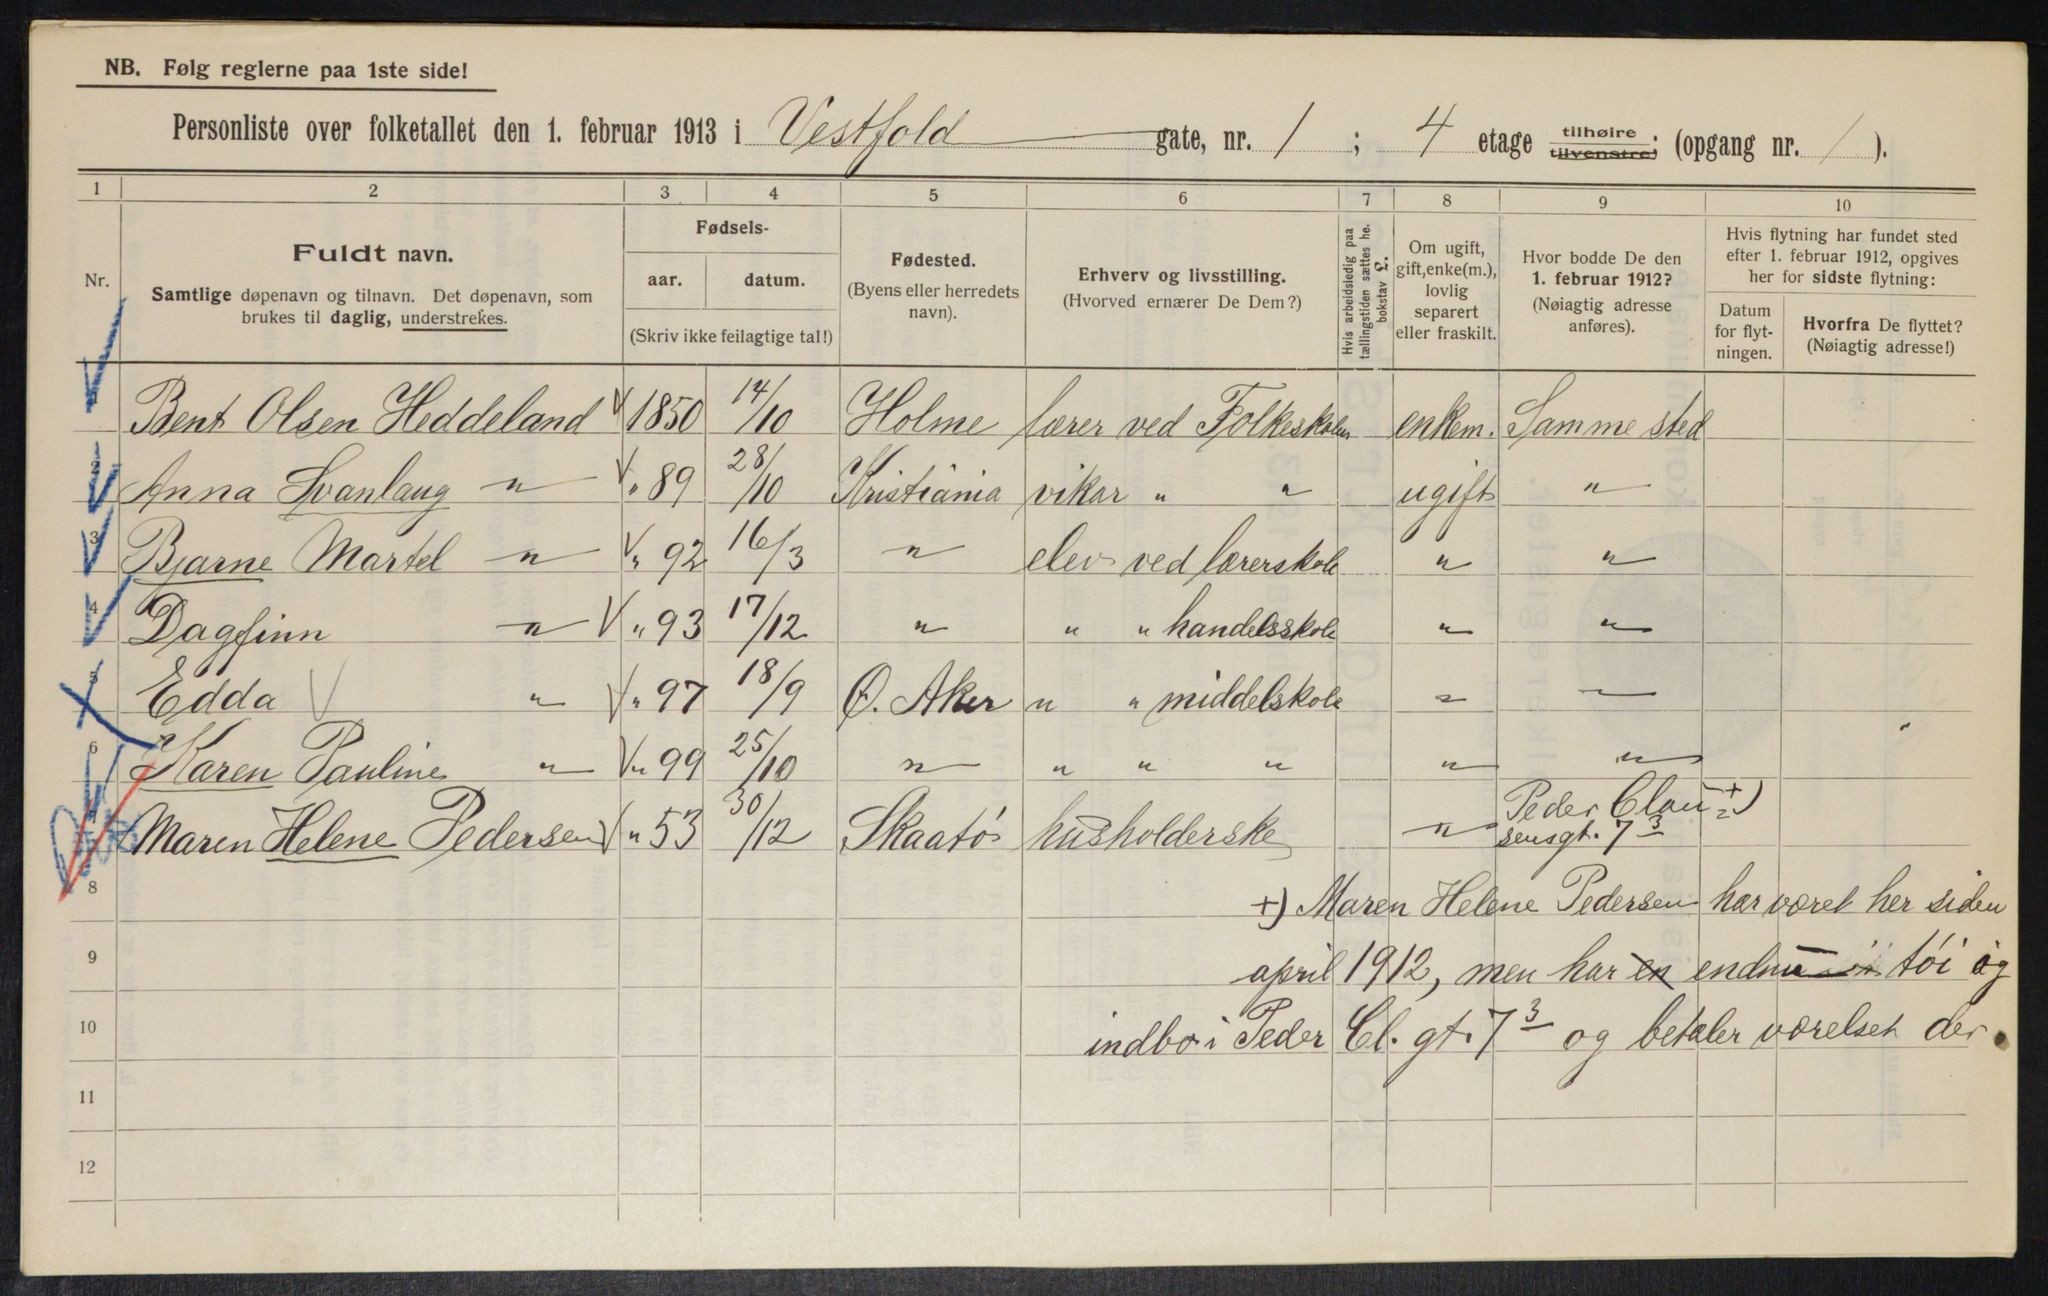 NB. Følg reglerne paa 1ste side!
Personliste over folketallet den 1. februar 1913 i Vestfold gate, nr. 1 ; 4 etage tilhøire tilvenstre; (opgang nr. 1 ).
1 2 3 4 5 6 7 8 9 10
Nr.
Fuldt navn.
Samtlige døpenavn og tilnavn. Det døpenavn, som
brukes til daglig, understrekes.
Fødsels-
aar. datum.
(Skriv ikke feilagtige tal!)
Fødested.
(Byens eller herredets
navn).
Erhverv og livsstilling.
(Hvorved ernærer De Dem?)
Hvis arbeidsledig paa
tællingstiden sættes he.
bokstav £.
Om ugift,
gift, enke(m.),
lovlig
separert
eller fraskilt.
Hvor bodde De den
1. februar 1912?
(Nøiagtig adresse
anføres).
Hvis flytning har fundet sted
efter 1. februar 1912, opgives
her for sidste flytning:
Datum
for flyt-
ningen.
Hvorfra De flyttet?
(Nøiagtig adresse!)
Bent Olsen Heddeland 1850 14/10 Holme lærer ved Folkeskolen enkem. Samme sted
2 Anna Svanlaug " " 89 28/10 Kristiania vikar " " ugift "
3 Bjarne Martel " " 92 16/3 " elev ved lærerskole " "
4 Dagfinn " " 93 17/12 " " " handelsskole " "
5 Edda " " 97 18/9 Ø. Aker " " middelskole " "
6 Karen Pauline " " 99 25/10 " " " " " "
Maren Helene Pedersen " 53 30/12 Skaatø husholderske " Peder Clau= +)
sensgt. 7 3
8 +) Maren Helene Pedersen har været her siden
9 april 1912, men har en endnu tøi og
10 indbo i Peder Cl. gt. 7 3 og betaler værelset der.
11
12